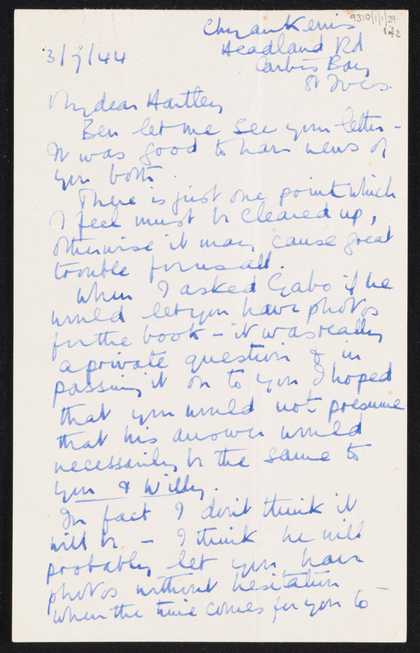 9310/1/1/29
1 of 2
Chy an Kerris
Headland Rd
Carbis Bay
St Ives.
3/7/44
My dear Hartley
Ben let me see your letter -
It was good to have news of
you both.
There is just one point which
I feel must be cleared up,
otherwise it may cause great
trouble for us all.
When I asked Gabo if he
would let you have photos
for the book - it was really
a private question & in
passing it on to you I hoped
that you would not presume
that his answer would
necessarily be the same to
you & Willy.
In fact I don't think it
will be - I think he will
probably let you have
photos without hesitation
when the time comes for you to -